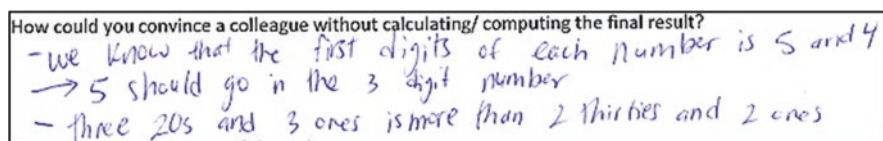 How could you convince a colleague without calculating/ computing the final result?
- we know that the first digits of each number is 5 and 4
→ 5 should go in the 3 digit number
- three 20s and 3 ones is more than 2 thirties and 2 ones